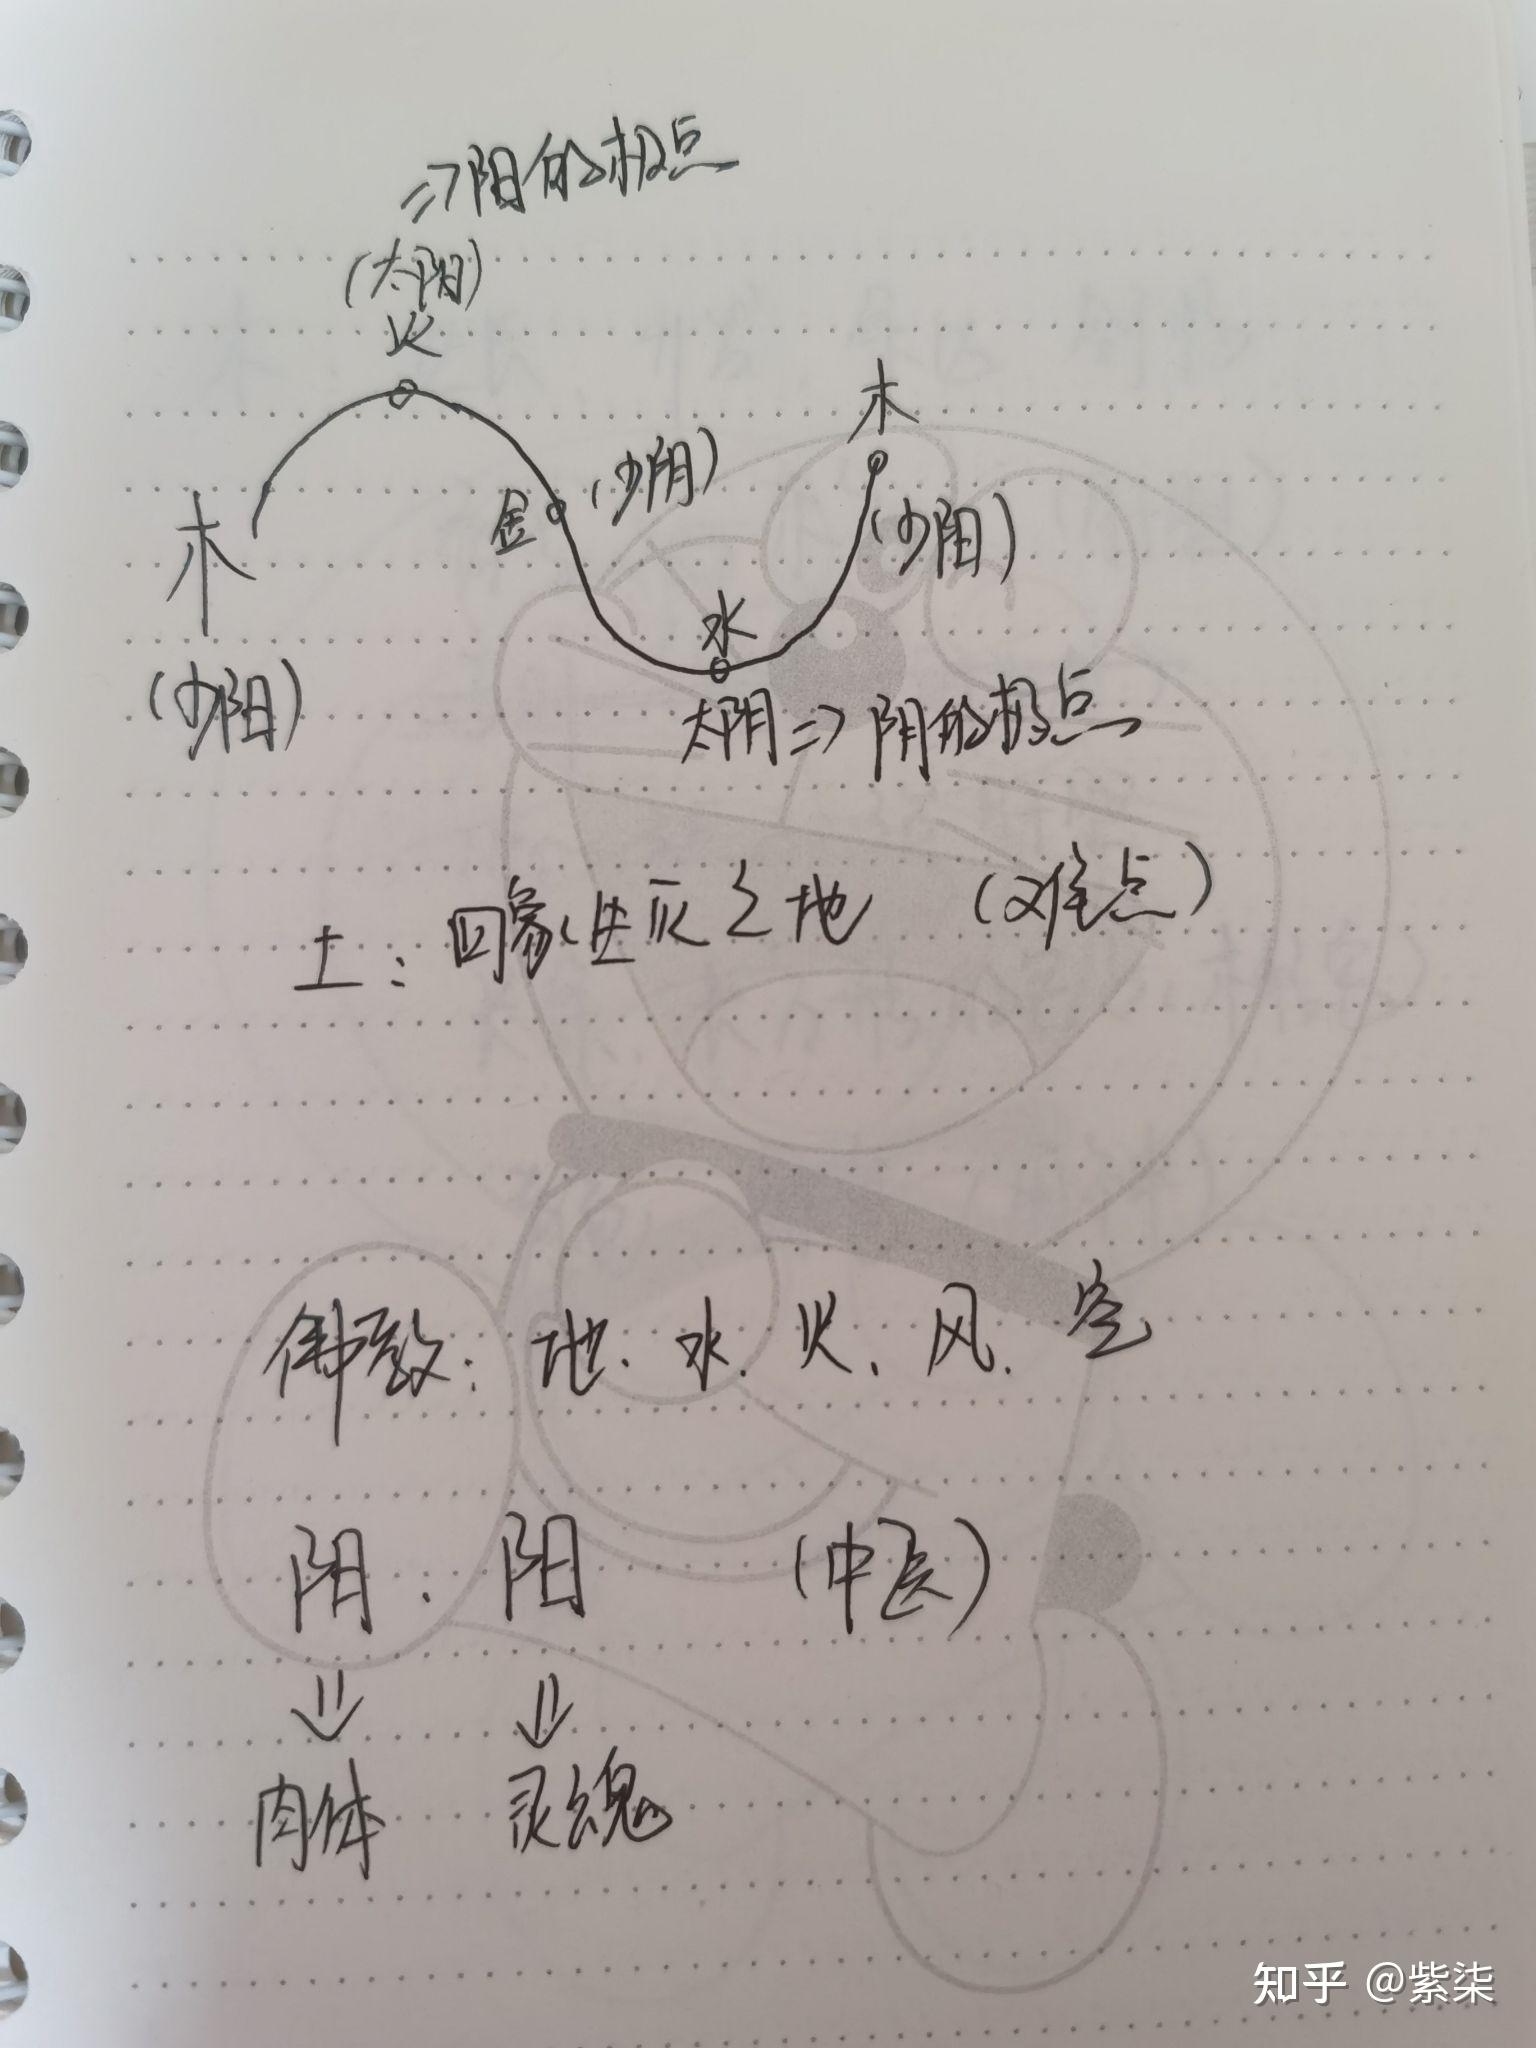 =>阳的极点
(太阳)
火
木
金 (少阴)
木
(少阳)
水
(少阳)
太阴=>阴的极点
土：四象 之地 (难点)
佛教：地.水.火、风.空
阴.阳 (中医)
肉体 灵魂
知乎 @紫柒